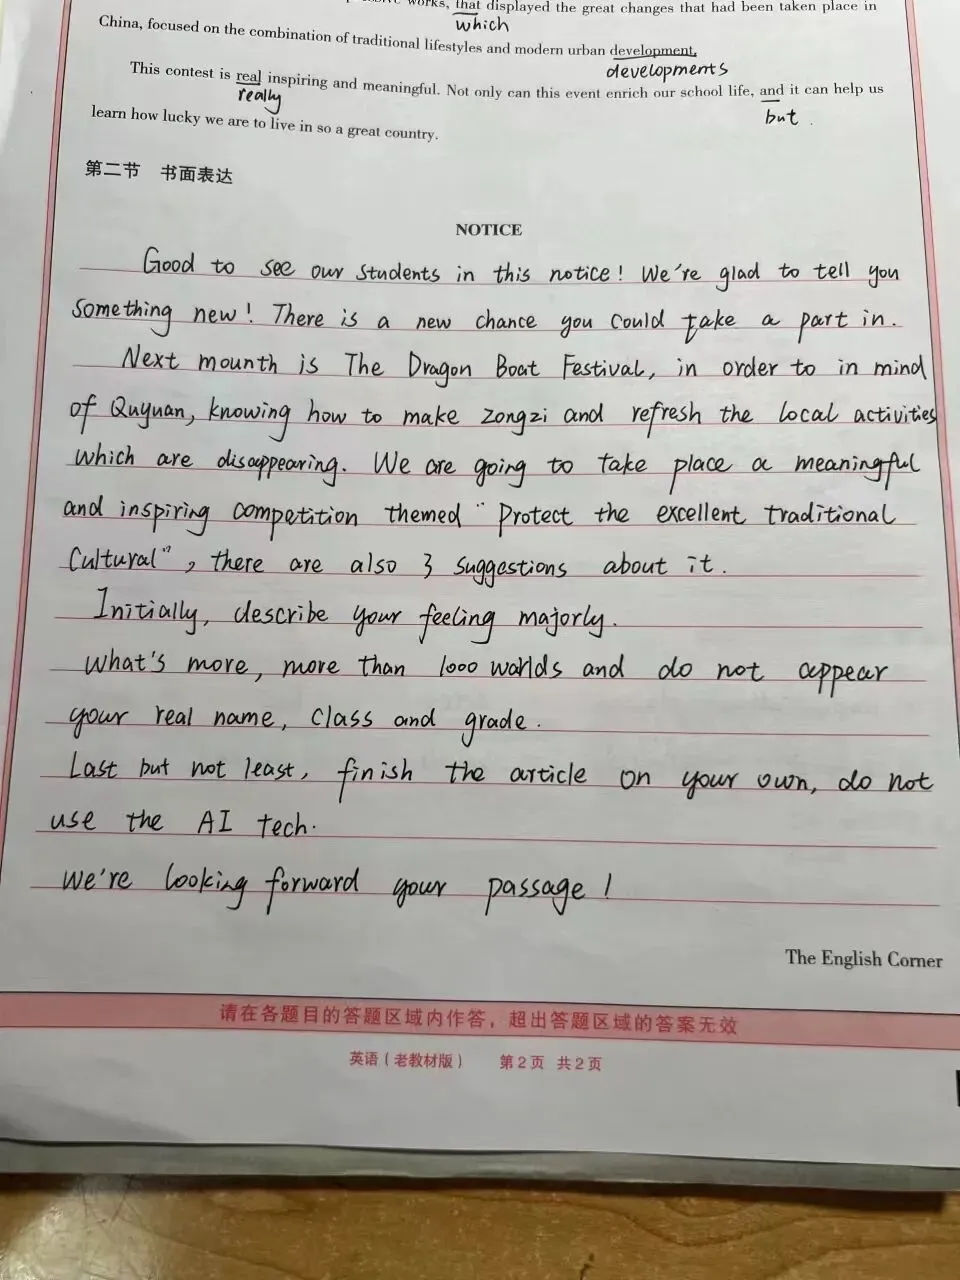 works, that displayed the great changes that had been taken place in
which
China, focused on the combination of traditional lifestyles and modern urban development.
developments
This contest is real inspiring and meaningful. Not only can this event enrich our school life, and it can help us
really
but
learn how lucky we are to live in so a great country.
第二节 书面表达
NOTICE
Good to see our students in this notice! We're glad to tell you
something new! There is a new chance you could take a part in.
Next mounth is The Dragon Boat Festival, in order to in mind
of Quyuan, knowing how to make zongzi and refresh the local activities
which are disappearing. We are going to take place a meaningful
and inspiring competition themed "Protect the excellent traditional
Cultural", there are also 3 suggestions about it.
Initially, describe your feeling majorly.
What's more, more than 1000 worlds and do not appear
your real name, class and grade.
Last but not least, finish the article on your own, do not
use the AI tech.
We're looking forward your passage!
The English Corner
请在各题目的答题区域内作答，超出答题区域的答案无效
英语（老教材版） 第2页 共2页